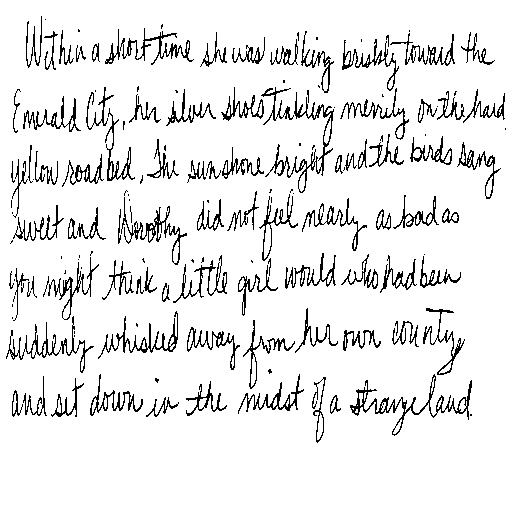 Within a short time she was walking briskly toward the
Emerald City, her silver shoes tinkling merrily on the hard
yellow roadbed. The sun shone bright and the birds sang
sweet and Dorothy did not feel nearly as bad as
you might think a little girl would who had been
suddenly whisked away from her own county,
and set down in the midst of a strange land.